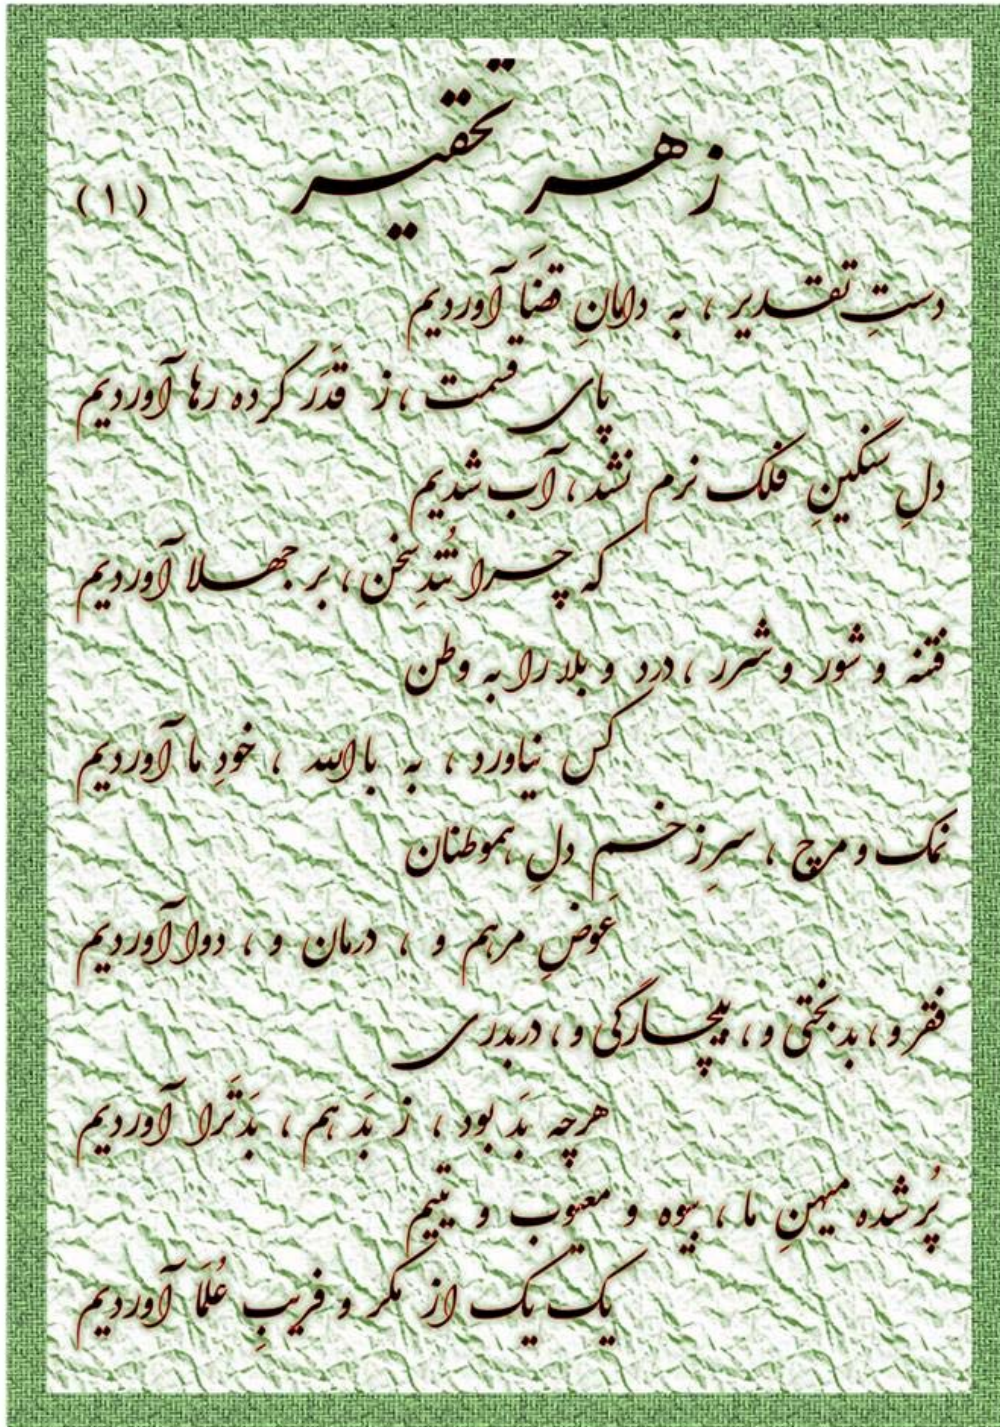 زهر تحقیر
(۱)
دستِ تقدیر ، به دامانِ قضَا آوردیم
پای قسمت ، ز قدَر کرده رها آوردیم
دلِ سنگینِ فلک نرم نشد ، آب شدیم
که چرا تُندِ سخن ، بر جهلا آوردیم
فتنه و شور و شرر ، درد و بلا را به وطن
کس نیاورد ، به باالله ، خودِ ما آوردیم
نمک و مرچ ، سرِ زخم دلِ هموطنان
عَوضِ مرہم و ، درمان و ، دوا آوردیم
فقر و ، بدبختی و ، بیچارگی و ، دربدری
هرچه بَد بود ، ز بَد هم ، بَدتَرا آوردیم
پُر شده میهنِ ما ، بیوه و معیوب و یتیم
یک یک از مکر و فریبِ عُلَما آوردیم